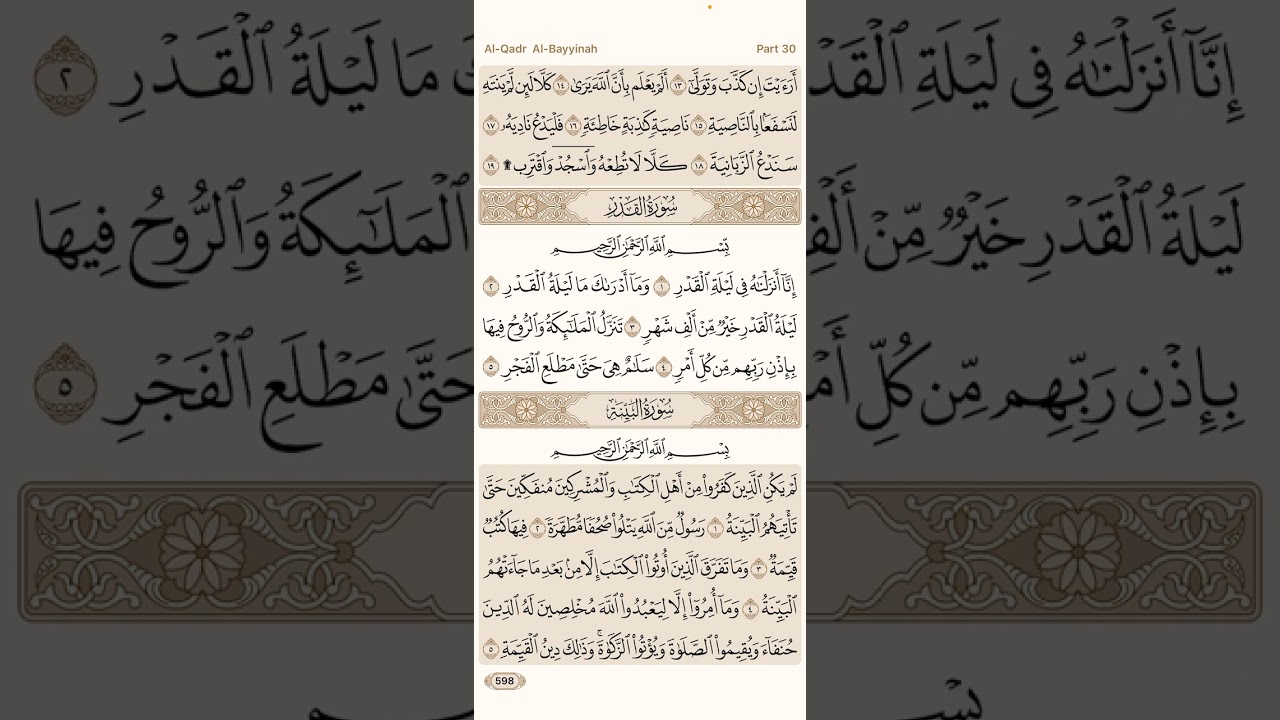 Al-Qadr Al-Bayyinah
Part 30
أَرَءَيْتَ إِن كَذَّبَ وَتَوَلَّىٰٓ ١٣ أَلَمْ يَعْلَم بِأَنَّ ٱللَّهَ يَرَىٰ ١٤ كَلَّا لَئِن لَّمْ يَنتَهِ
لَنَسْفَعًۢا بِٱلنَّاصِيَةِ ١٥ نَاصِيَةٍ كَٰذِبَةٍ خَاطِئَةٍ ١٦ فَلْيَدْعُ نَادِيَهُۥ ١٧
سَنَدْعُ ٱلزَّبَانِيَةَ ١٨ كَلَّا لَا تُطِعْهُ وَٱسْجُدْ وَٱقْتَرِب ۩ ١٩
سُورَةُ القَدْرِ
بِسْمِ ٱللَّهِ ٱلرَّحْمَٰنِ ٱلرَّحِيمِ
إِنَّآ أَنزَلْنَٰهُ فِى لَيْلَةِ ٱلْقَدْرِ ١ وَمَآ أَدْرَىٰكَ مَا لَيْلَةُ ٱلْقَدْرِ ٢
لَيْلَةُ ٱلْقَدْرِ خَيْرٌ مِّنْ أَلْفِ شَهْرٍ ٣ تَنَزَّلُ ٱلْمَلَٰٓئِكَةُ وَٱلرُّوحُ فِيهَا
بِإِذْنِ رَبِّهِم مِّن كُلِّ أَمْرٍ ٤ سَلَٰمٌ هِىَ حَتَّىٰ مَطْلَعِ ٱلْفَجْرِ ٥
سُورَةُ البَيِّنَةِ
بِسْمِ ٱللَّهِ ٱلرَّحْمَٰنِ ٱلرَّحِيمِ
لَمْ يَكُنِ ٱلَّذِينَ كَفَرُوا۟ مِنْ أَهْلِ ٱلْكِتَٰبِ وَٱلْمُشْرِكِينَ مُنفَكِّينَ حَتَّىٰ
تَأْتِيَهُمُ ٱلْبَيِّنَةُ ١ رَسُولٌ مِّنَ ٱللَّهِ يَتْلُوا۟ صُحُفًا مُّطَهَّرَةً ٢ فِيهَا كُتُبٌ
قَيِّمَةٌ ٣ وَمَا تَفَرَّقَ ٱلَّذِينَ أُوتُوا۟ ٱلْكِتَٰبَ إِلَّا مِنۢ بَعْدِ مَا جَآءَتْهُمُ
ٱلْبَيِّنَةُ ٤ وَمَآ أُمِرُوٓا۟ إِلَّا لِيَعْبُدُوا۟ ٱللَّهَ مُخْلِصِينَ لَهُ ٱلدِّينَ
حُنَفَآءَ وَيُقِيمُوا۟ ٱلصَّلَوٰةَ وَيُؤْتُوا۟ ٱلزَّكَوٰةَ ۚ وَذَٰلِكَ دِينُ ٱلْقَيِّمَةِ ٥
598